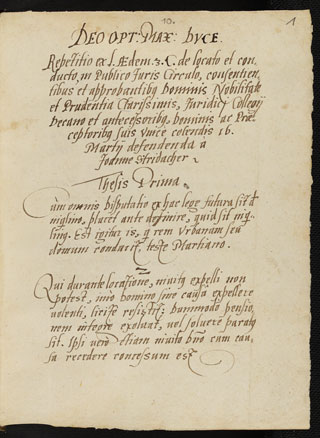 10.
1
DEO OPT: MAX: DVCE.
Repetitio ex l. Ædem. 3. C. de locato et con
ducto, in Publico Juris Circulo, consentien,
tibus et approbantibq Dominis Nobilitate
et Prudentia Clarissimis, Juridici Collegij
Decano et antecessoribq. Dominis ac Præ
ceptoribq suis vnice colendis 16.
Martij defendenda a
Joanne Stridacher.
Thesis Prima.
Cum omnis Disputatio ex hac lege futura sit de
inqlino, placet ante definire, quid sit inq,
linq. Est igitur is, q rem Vrbanam seu
domum conducit, teste Martiano.
Qui durante locatione, inuitq expelli non
potest, imo domino sine causa expellere
volenti, licite resistit; dummodo pensio,
nem integre exoluat, vel soluere paratq
sit. Ipsi vero etiam inuito dno cum cau,
sa recedere concessum est.